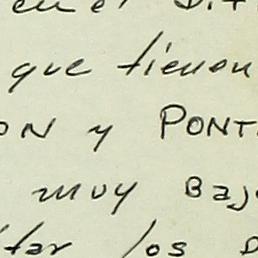 en el
que tienen
ON y PONT
muy Baj
tar los